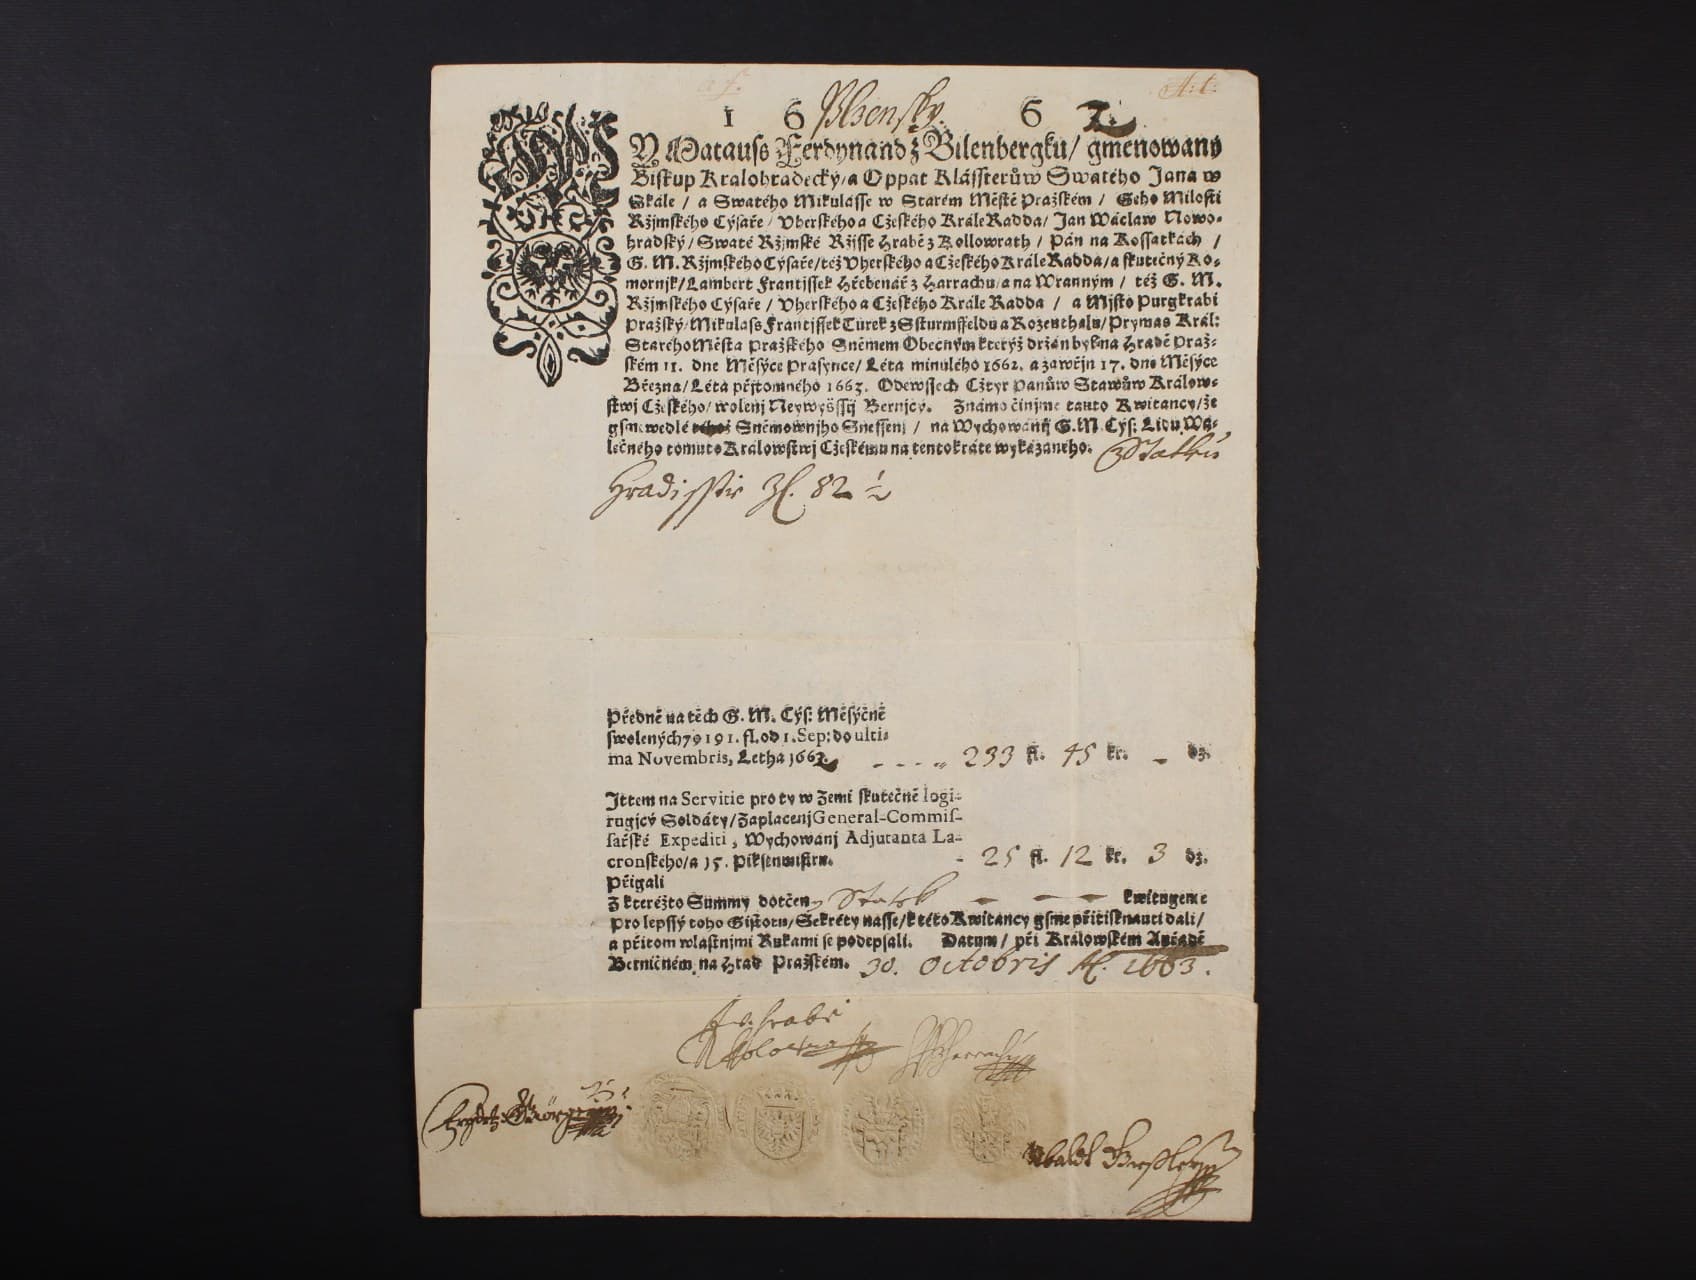 A: t:
1 6 Plzensky. 6 2.
MY Matauss Ferdynand z Bilenbergku / gmenowaný
Biskup Kralohradecký / a Oppat Klássterůw Swatého Jana w
Skále / a Swatého Mikulásse w Starém Městě Pražském / Geho Milosti
Ržjmského Cýsaře / Vherského a Cžeského Krále Radda / Jan Wáclaw Nowo-
hradský / Swaté Ržjmské Ržjsse Hrabě z Kollowrath / Pán na Kossatkách /
G. M. Ržjmského Cýsaře / též Vherského a Cžeského Krále Radda / a skutečný Ko-
mornjk / Lambert Frantjssek Hřebenář z Harrachu / a na Wranným / též G. M.
Ržjmského Cýsaře / Vherského a Cžeského Krále Radda / a Mjsto Purgkrabí
Pražský / Mikulass Frantjssek Turek z Ssturmffeldu a Rozenthalu / Prymas Král:
Starého Města Pražského Sněmem Obecným kterýž držán byl na Hradě Praž-
ském 11. dne Měsýce Prasynce / Léta minulého 1662. a zawřjn 17. dne Měsýce
Března / Léta přjtomného 1663. Odewssech Cžtyr Panůw Stawůw Králow-
stwj Cžeského / wolenj Neywyšssij Bernjcy. Známo činjme tauto Kwitancy / že
gsme wedlé téhož Sněmownjho Snessenj / na Wychowánij G. M. Cýs: Lidu Wá-
lečného tomuto Králowstwj Cžeskému na tentokráte wykázaného. z Statku
Hradisstie Zl. 82 1/2
Předně na těch G. M. Cýs: Měsýčně
swolených 79191. fl. od 1. Sep: do ulti-
ma Novembris, Letha 1663. 233 fl. 45 kr. - dz.
Jttem na Servitie pro ty w Zemi skutečně logi-
rugjcý Soldáty / Zaplacenj General-Commis-
sařské Expediti, Wychowánj Adjutanta La-
cronského / a 15. Piksenmistrů. - 25 fl. 12 kr. 3 dz.
Přigali
Z kteréžto Summy dotčený Statek - - - kwitugeme
Pro lepssý toho Gistotu / Sekréty nasse / k této Kwitancy gsme přitisknauti dali /
a přitom wlastnjmi Rukami se podepsali. Datum / při Králowském Auřadě
Berničném na Hrad Pražském. 30. Octobris A. 1663.